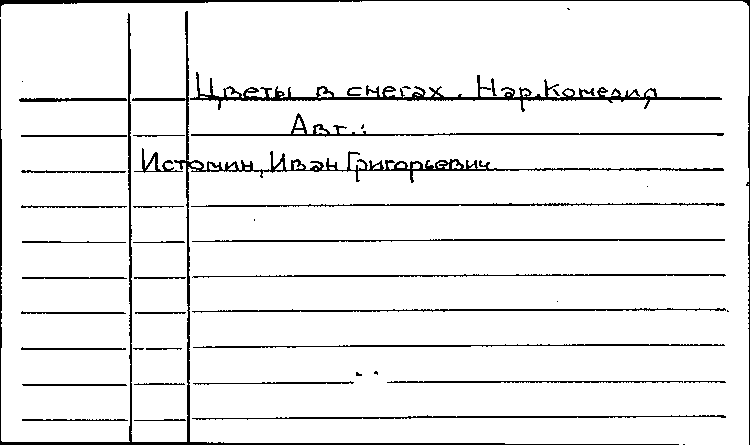 Цветы в снегах. Нар.Комедия
Авт.:
Истомин, Иван Григорьевич